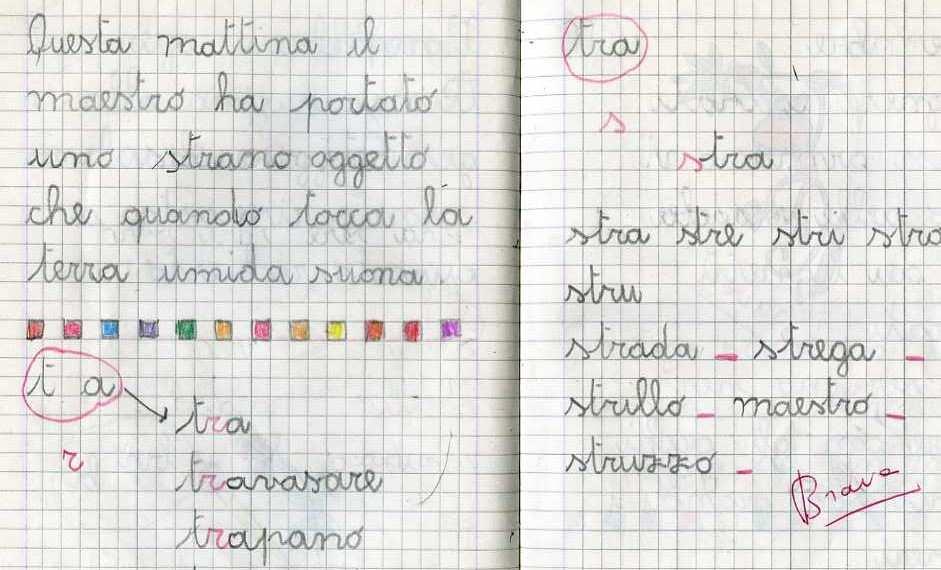 Questa mattina il
maestro ha portato
uno strano oggetto
che quando tocca la
terra umida suona.
t a
r
tra
travasare
trapano
tra
s
stra
stra stre stri stro
stru
strada - strega -
strillo - maestro -
struzzo -
Brava